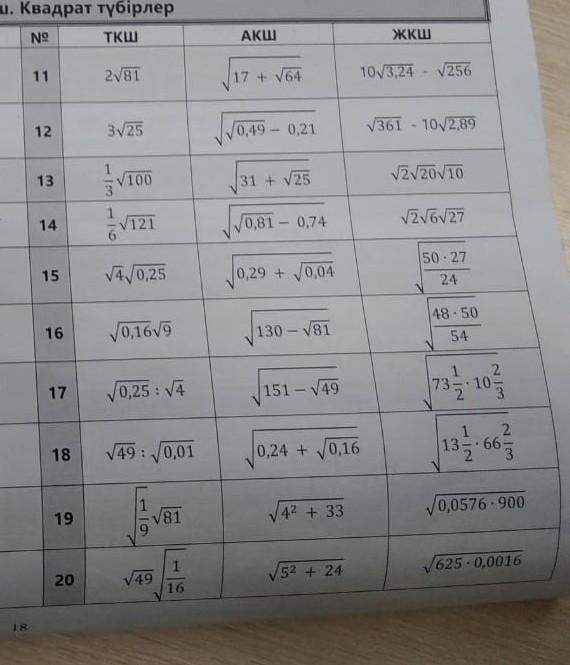 ш. Квадрат түбірлер
№ ТКШ АКШ ЖКШ
11 2√81 √(17 + √64) 10√3,24 - √256
12 3√25 √(√0,49 − 0,21) √361 - 10√2,89
13 1/3√100 √(31 + √25) √2√20√10
14 1/6√121 √(√0,81 − 0,74) √2√6√27
15 √4√0,25 √(0,29 + √0,04) √(50·27/24)
16 √0,16√9 √(130 − √81) √(48·50/54)
17 √0,25 : √4 √(151 − √49) √(73 1/2 · 10 2/3)
18 √49 : √0,01 √(0,24 + √0,16) √(13 1/2 · 66 2/3)
19 √(1/9)√81 √(4² + 33) √(0,0576·900)
20 √49√(1/16) √(5² + 24) √(625·0,0016)
18